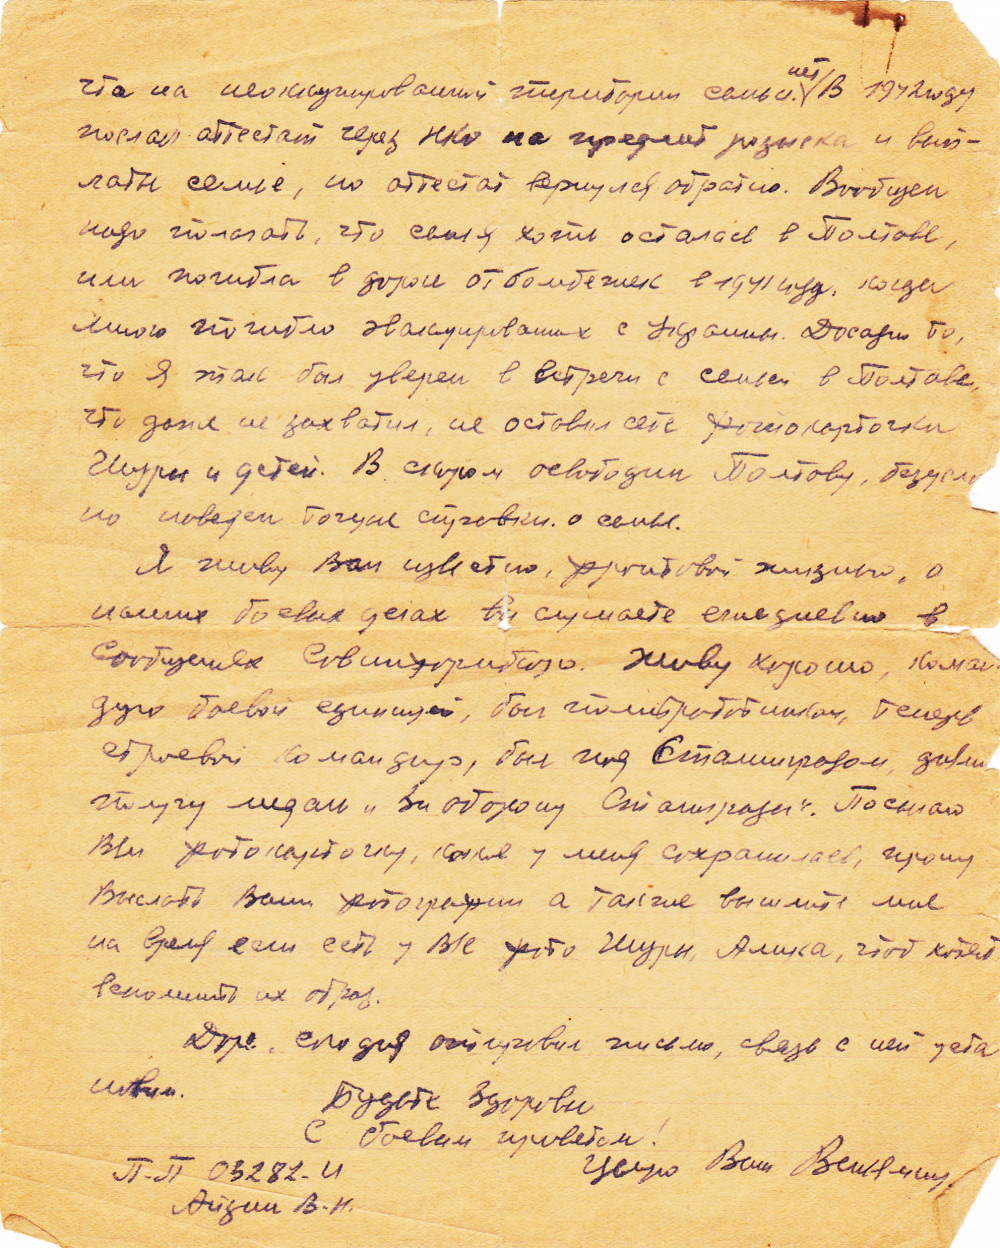 что на неоккупированной територии семьи нет. В 1942 году
послал аттестат через НКО на предмет розыска и вып-
латы семье, но аттестат вернулся обратно. Вообщем
надо полагать, что семья хоть осталась в Полтаве,
или погибла в дороге от бомбежек в 1941 году, когда
много погибло эвакуированых с Украины. Досадно то,
что я так был уверен в встречи с семьей в Полтаве,
что даже не захватил, не оставил себе фотокарточки
Шуры и детей. В скором освободим Полтову, безусло
но наведем точные справки о семье.
Я живу Вам известно, фронтовой жизнью, о
наших боевых делах Вы слушаете ежедневно в
Сообщениях Совинформбюро. Живу хорошо, коман-
дую боевой единицей, был политработником, теперь
строевой командир, был под Сталинградом,
получу медаль "За оборону Сталинграда". Посылаю
Вам фотокарточку, какая у меня сохранилась, прошу
выслать Ваши фотографии а также вышлите мне
на время если есть у Вас фото Шуры, Алика, чтоб хотят
вспомнить их образ.
Доре, сегодня отправил письмо, связь с ней уста
новил.
Будьте Здоровы
С боевым приветом!
Целую Ваш Вениамин.
П-П 03282-И
Айзин В.Н.